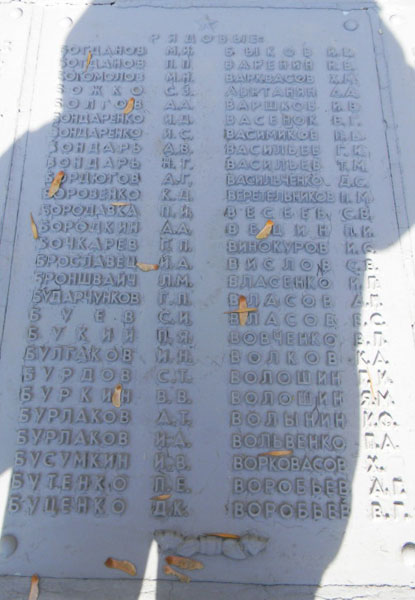 РЯДОВЫЕ:
БОГДАНОВ М.Я. БЫКОВ
БОГДАНОВ П.П. ВАРЕНИК
БОГОМОЛОВ М.Н. ВАРКВАСОВ
БОЖКО С.З.
БОЛГОВ А.А. ВАРШКОВ
БОНДАРЕНКО И.Д. ВАСЕНОК
БОНДАРЕНКО И.С. ВАСИМИКОВ
БОНДАРЬ Д.В. ВАСИЛЬЕВ Г.И.
БОНДАРЬ Н.Т. ВАСИЛЬЕВ Т.М.
БОРДЮГОВ А.Г. ВАСИЛЬЧЕНКО Д.С.
БОРОВЕНКО К.Д. ВЕРЕТЕЛЬНИКОВ П.М.
БОРОДАВКА П.И. ВЕСЕЕВ С.В.
БОРОДКИН А.А. П.И.
БОЧКАРЕВ Г.П. ВИНОКУРОВ И.С.
БРОСЛАВЕЦ И.А. ВИСЛОВ С.Е.
БРОНШВАЙЧ Л.М. ВЛАСЕНКО И.П.
БУДАРЧУНКОВ Г.П. ВЛАСОВ А.Н.
БУЕВ С.И. ВЛАСОВ Е.С.
БУКИЙ П.Я. ВОВЧЕНКО В.П.
БУЛГАКОВ И.Н. ВОЛКОВ К.А.
БУРДОВ С.Т. ВОЛОШИН
БУРКИН В.В. ВОЛОШИН Я.М.
БУРЛАКОВ А.Т. ВОЛЫНИН И.С.
БУРЛАКОВ И.А. ВОЛЬВЕНКО П.А.
БУСУМКИН И.В. ВОРКОВАСОВ Х.
БУТЕНКО П.Е. ВОРОБЬЕВ А.Г.
БУЦЕНКО Д.К. ВОРОБЬЕВ В.Г.